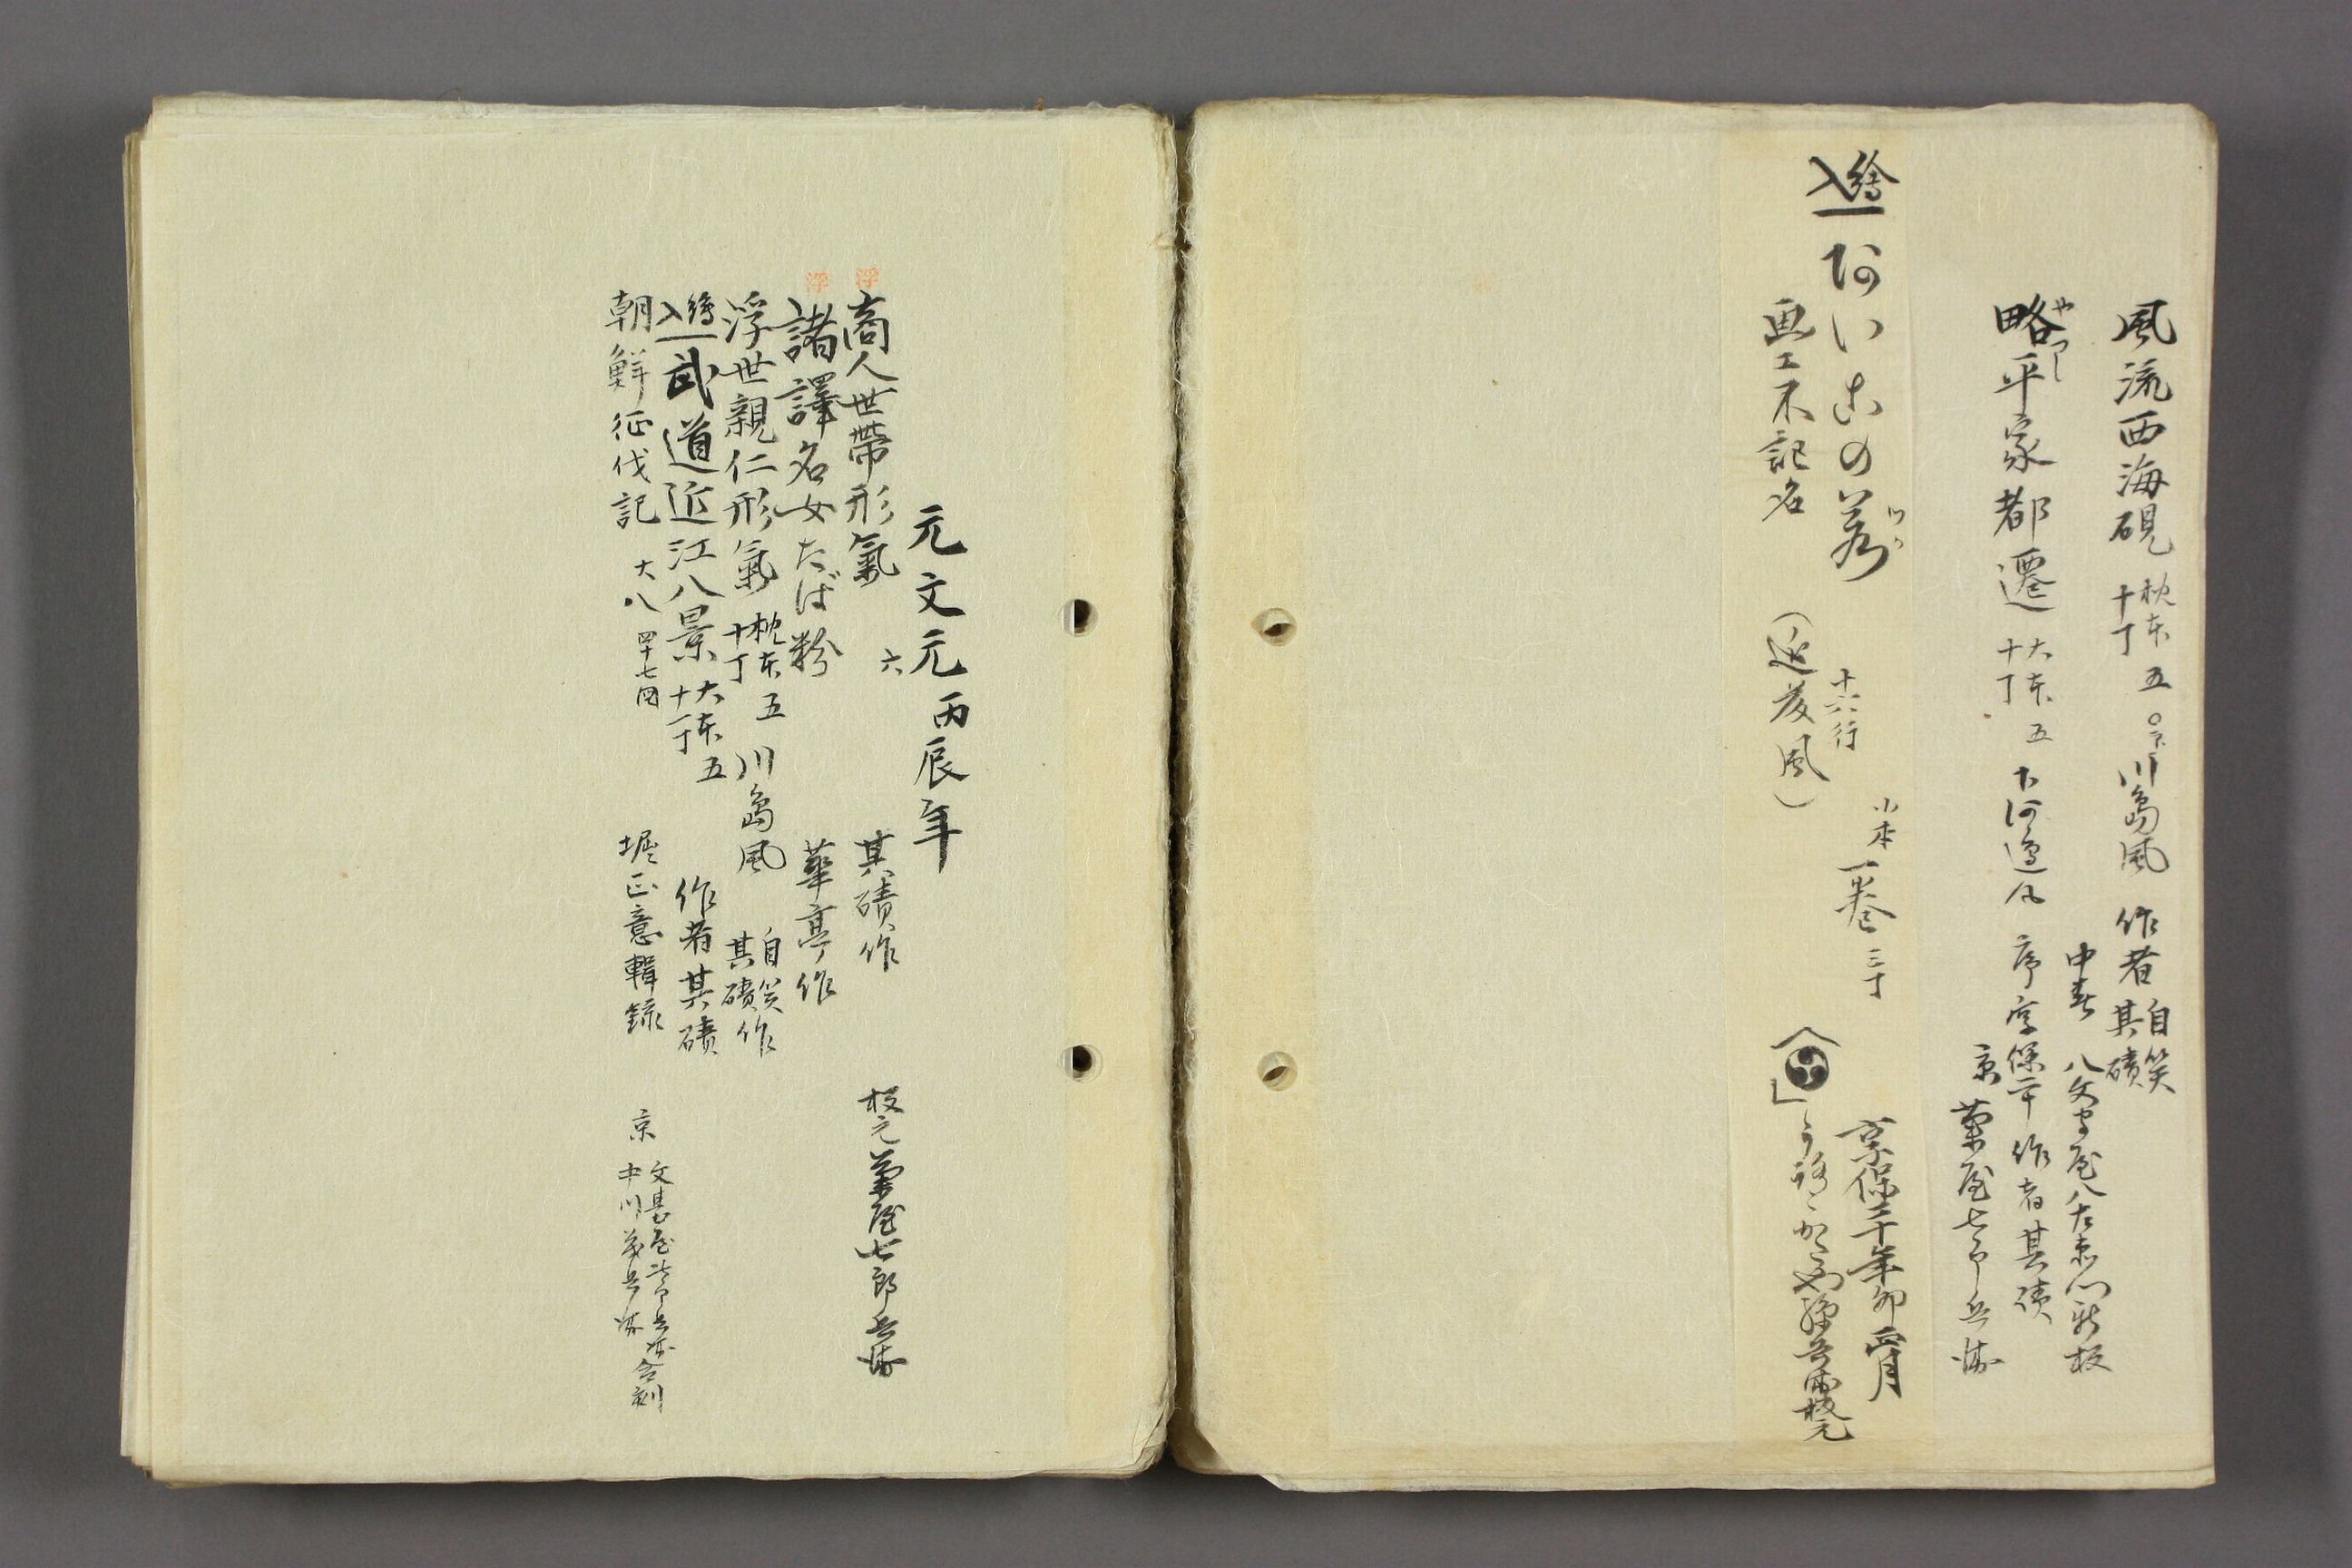 風流西海硯 枕本 十丁 五 川島風 作者 自笑 其磧
中春 八文字屋八左衛門新板
略平家都遷 大本 十丁 五 下河辺風 序享保二十 作者其磧
やつし
京 菊屋七郎兵衛
繪入 おいこの
小本 一巻 三丁 享保二十年卯正月
十六行
画工不記名 (近藤風)
板元
元文元丙辰年
浮 商人世帯形氣 六 其磧作 板元菊屋七郎兵衛
浮 諸譯名女たば粉 華亭作
浮世親仁形氣 枕本 十丁 五 川島風 自笑 其磧作
繪入 武道近江八景 大本 十丁 五 作者其磧
朝鮮征伐記 大八 四十七図 堀正意輯録 京 文臺屋治郎兵衛 中川茂兵衛 合刻